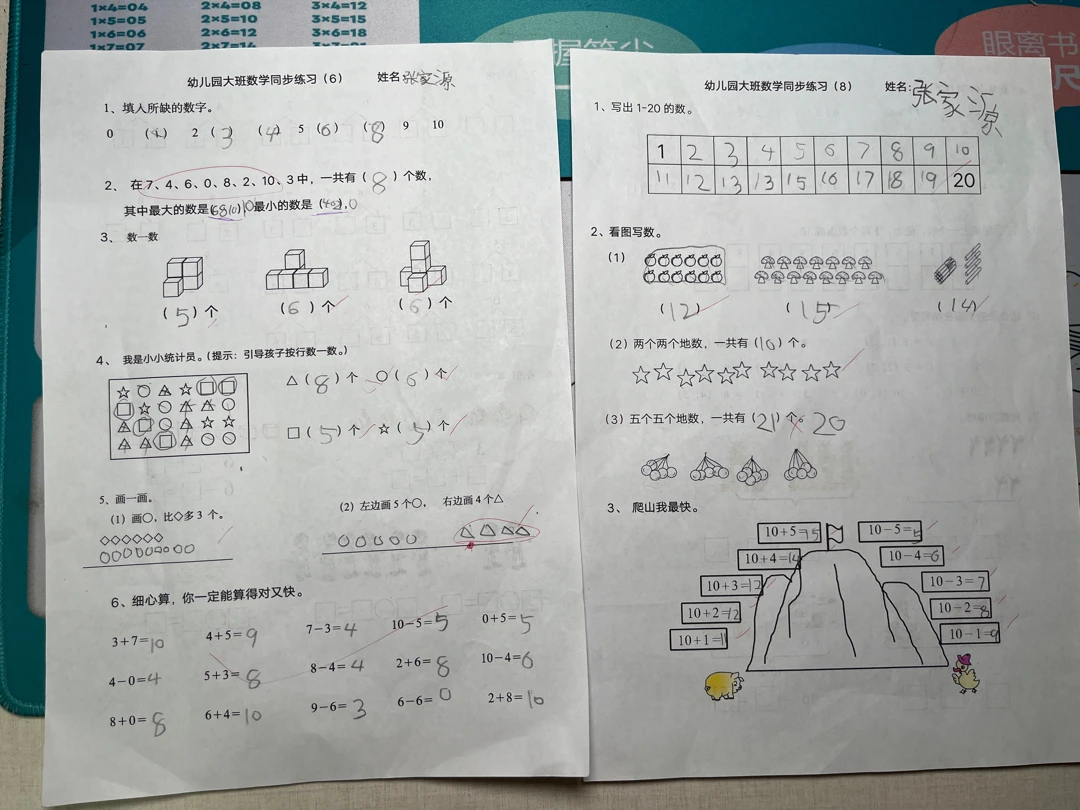 1×4=04 2×4=08 3×4=12
1×5=05 2×5=10 3×5=15
1×6=06 2×6=12 3×6=18
1×7=07 2×7=14
眼离书
尺
幼儿园大班数学同步练习（6） 姓名张家源
1、填入所缺的数字。
0 （1） 2 （3） （4） 5 （6） （8） 9 10
2、 在7、4、6、0、8、2、10、3中，一共有（8）个数，
其中最大的数是 10 最小的数是 0
3、 数一数
（5）个 （6）个 （6）个
4、 我是小小统计员。（提示：引导孩子按行数一数。）
△（8）个 ○（6）个
□（5）个 ☆（5）个
5、画一画。
（1）画○，比◇多 3 个。
（2）左边画 5 个○， 右边画 4 个△
6、细心算，你一定能算得对又快。
3+7=10 4+5=9 7-3=4 10-5=5 0+5=5
4-0=4 5+3=8 8-4=4 2+6=8 10-4=6
8+0=8 6+4=10 9-6=3 6-6=0 2+8=10
幼儿园大班数学同步练习（8） 姓名:张家源
1、写出 1-20 的数。
1 2 3 4 5 6 7 8 9 10
11 12 13 13 15 16 17 18 19 20
2、看图写数。
（1）
（12） （15） （14）
（2）两个两个地数，一共有（10）个。
（3）五个五个地数，一共有（21）个。 20
3、 爬山我最快。
10+5=15 10-5=5
10+4=14 10-4=6
10+3=12 10-3=7
10+2=12 10-2=8
10+1=11 10-1=9